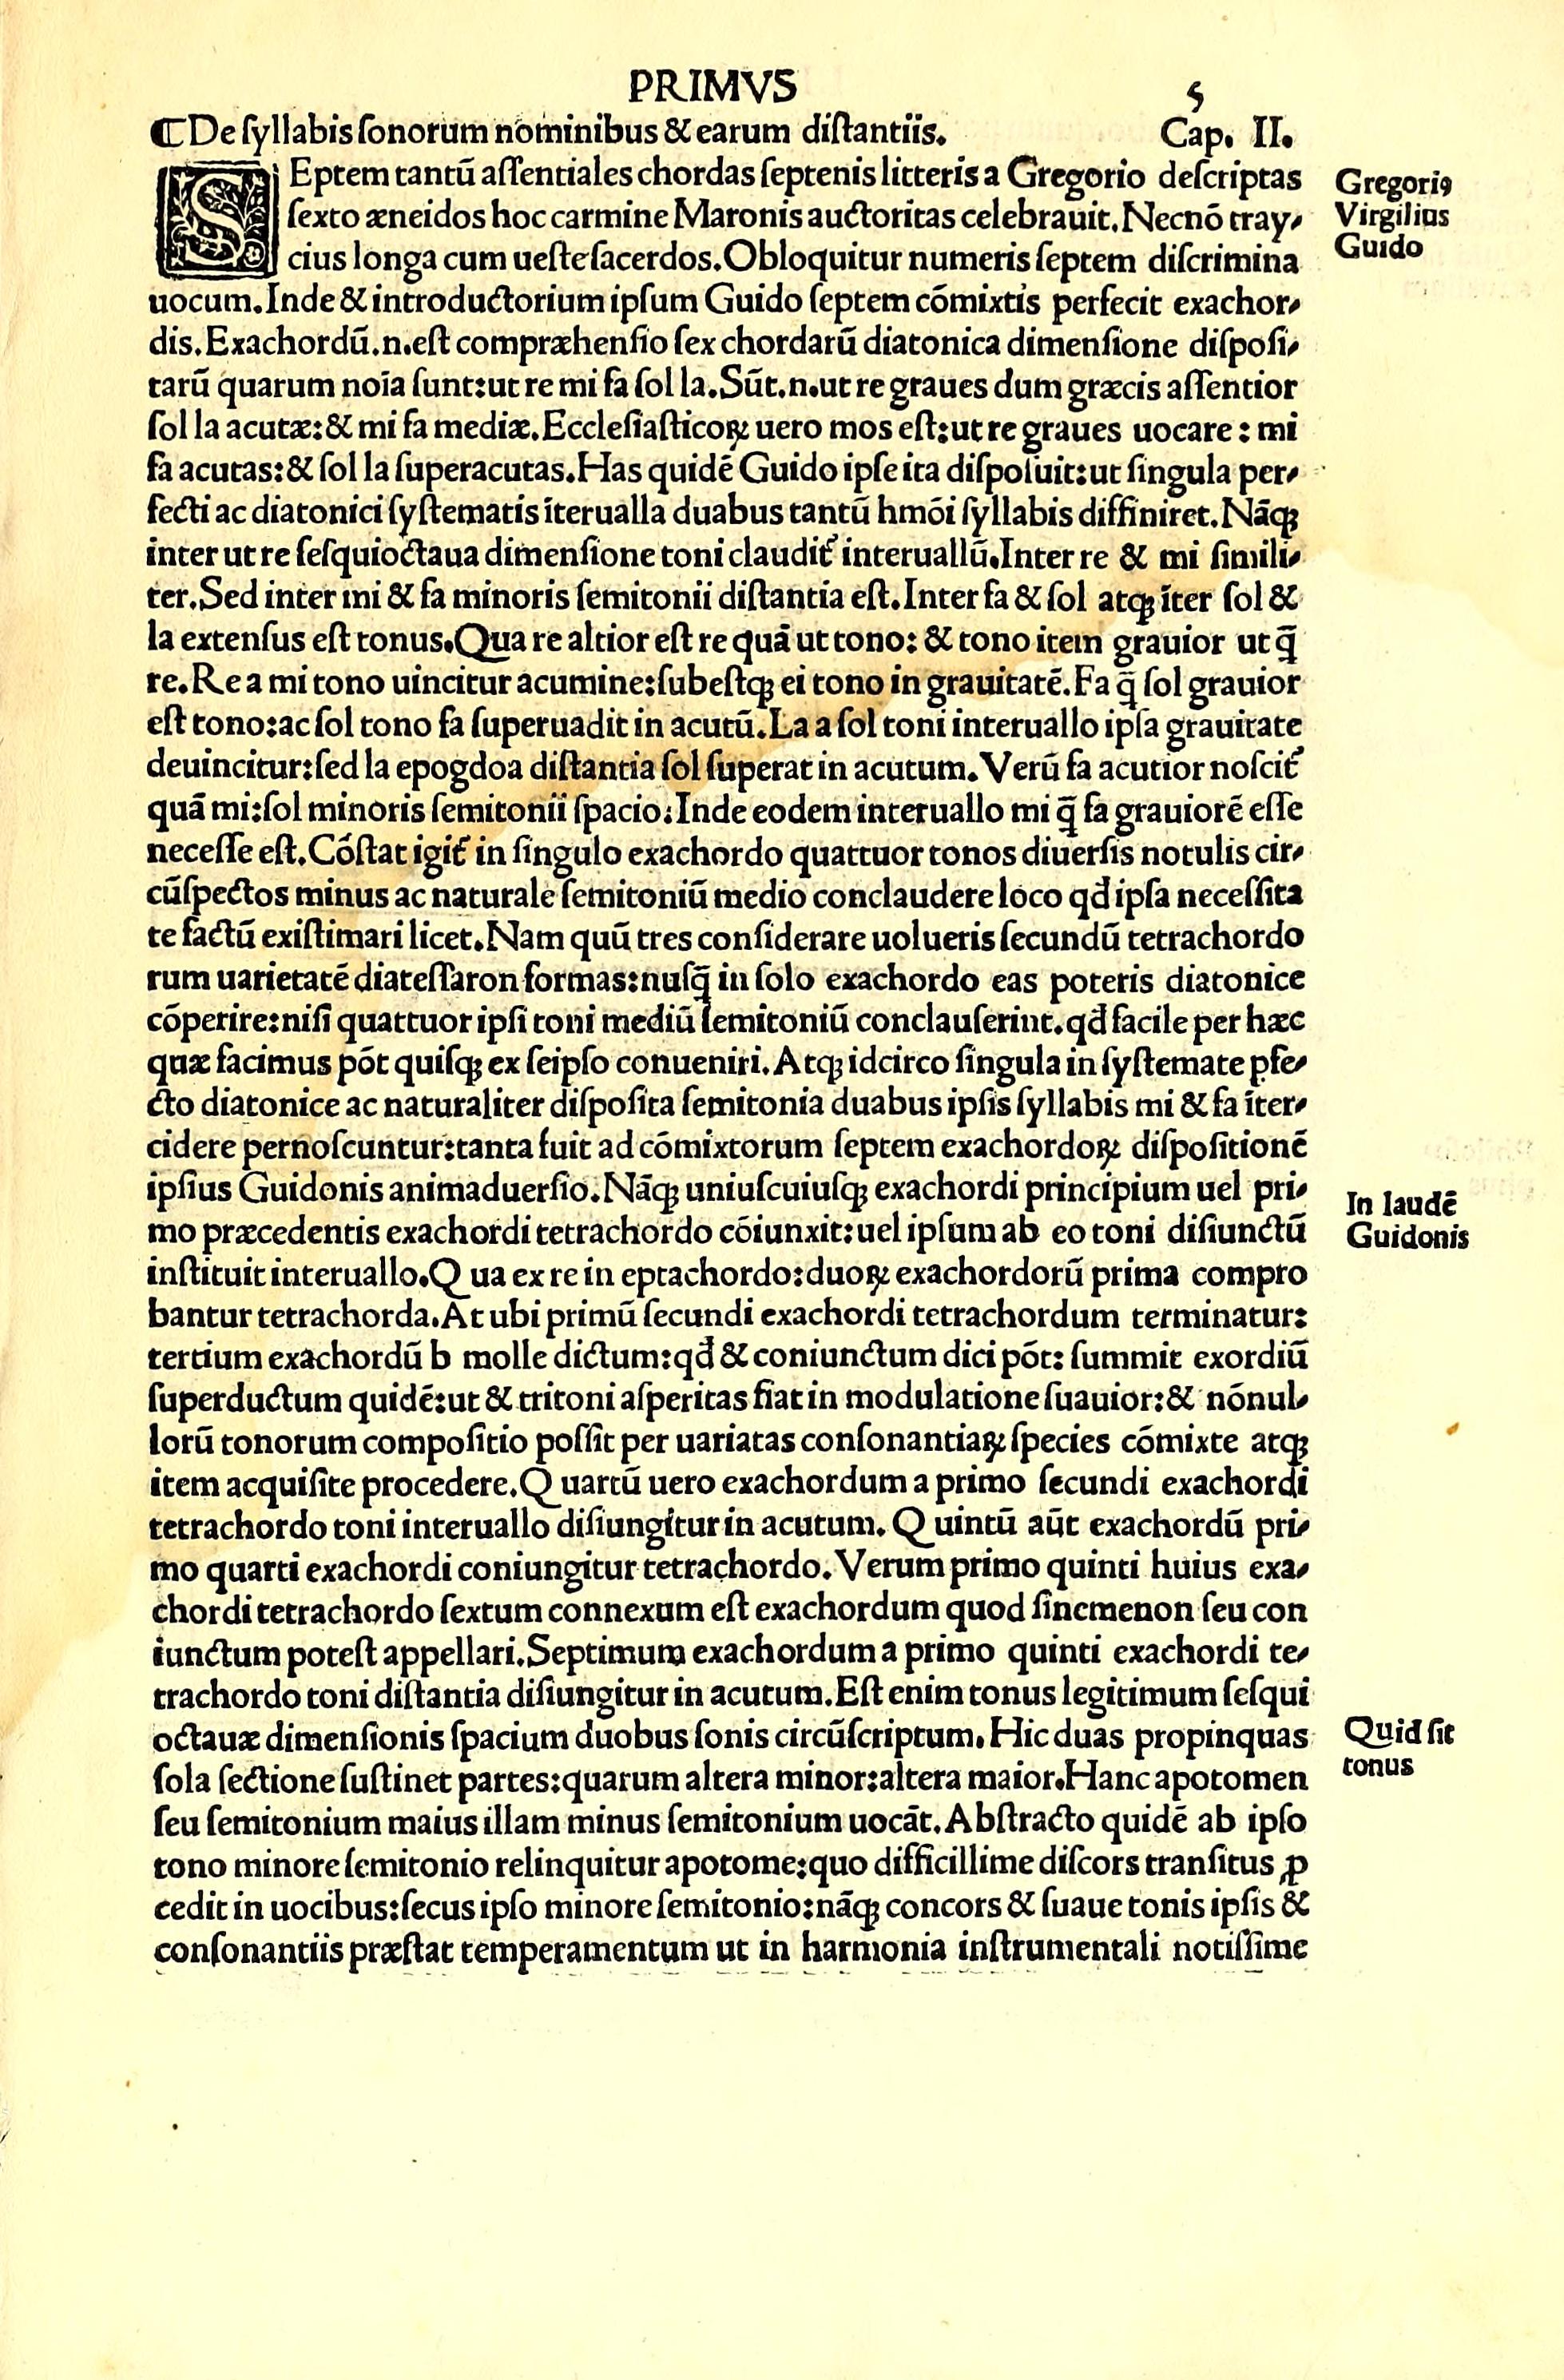 PRIMVS
5
¶De ſyllabis ſonorum nominibus & earum diſtantiis. Cap. II.
SEptem tantū aſſentiales chordas ſeptenis litteris a Gregorio deſcriptas
ſexto æneidos hoc carmine Maronis auctoritas celebrauit. Necnō tray-
cius longa cum ueſte ſacerdos. Obloquitur numeris ſeptem diſcrimina
uocum. Inde & introductorium ipſum Guido ſeptem cōmixtis perfecit exachor-
dis. Exachordū.n.eſt compræhenſio ſex chordarū diatonica dimenſione diſpoſi-
tarū quarum noīa ſunt: ut re mi fa ſol la. Sūt.n.ut re graues dum græcis aſſentior
ſol la acutæ: & mi fa mediæ. Eccleſiaſticoꝝ uero mos eſt: ut re graues uocare: mi
fa acutas: & ſol la ſuperacutas. Has quidē Guido ipſe ita diſpoſuit: ut ſingula per-
fecti ac diatonici ſyſtematis īterualla duabus tantū hmōi ſyllabis diffiniret. Nāꝙ
inter ut re ſeſquioctaua dimenſione toni claudit̄ interuallū. Inter re & mi ſimili-
ter. Sed inter mi & fa minoris ſemitonii diſtantia eſt. Inter fa & ſol atꝙ īter ſol &
la extenſus eſt tonus. Qua re altior eſt re quā ut tono: & tono item grauior ut q̄
re. Re a mi tono uincitur acumine: ſubeſtꝙ ei tono in grauitatē. Fa q̄ ſol grauior
eſt tono: ac ſol tono fa ſuperuadit in acutū. La a ſol toni interuallo ipſa grauitate
deuincitur: ſed la epogdoa diſtantia ſol ſuperat in acutum. Verū fa acutior noſcit̄
quā mi: ſol minoris ſemitonii ſpacio: Inde eodem interuallo mi q̄ fa grauiorē eſſe
neceſſe eſt. Cōſtat igit̄ in ſingulo exachordo quattuor tonos diuerſis notulis cir-
cūſpectos minus ac naturale ſemitoniū medio conclaudere loco qd̄ ipſa neceſſita
te factū exiſtimari licet. Nam quū tres conſiderare uolueris ſecundū tetrachordo
rum uarietatē diateſſaron formas: nuſq̄ in ſolo exachordo eas poteris diatonice
cōperire: niſi quattuor ipſi toni mediū ſemitoniū conclauſerint. qd̄ facile per hæc
quæ facimus pōt quiſꝙ ex ſeipſo conueniri. Atꝙ idcirco ſingula in ſyſtemate ꝑfe-
cto diatonice ac naturaliter diſpoſita ſemitonia duabus ipſis ſyllabis mi & fa īter-
cidere pernoſcuntur: tanta fuit ad cōmixtorum ſeptem exachordoꝝ diſpoſitionē
ipſius Guidonis animaduerſio. Nāꝙ uniuſcuiuſꝙ exachordi principium uel pri-
mo præcedentis exachordi tetrachordo cōiunxit: uel ipſum ab eo toni diſiunctū
inſtituit interuallo. Q ua ex re in eptachordo: duoꝝ exachordorū prima compro
bantur tetrachorda. At ubi primū ſecundi exachordi tetrachordum terminatur:
tertium exachordū b molle dictum: qd̄ & coniunctum dici pōt: ſummit exordiū
ſuperductum quidē: ut & tritoni aſperitas fiat in modulatione ſuauior: & nōnul-
lorū tonorum compoſitio poſſit per uariatas conſonantiaꝝ ſpecies cōmixte atꝙ
item acquiſite procedere. Q uartū uero exachordum a primo ſecundi exachordi
tetrachordo toni interuallo diſiungitur in acutum. Q uintū aūt exachordū pri-
mo quarti exachordi coniungitur tetrachordo. Verum primo quinti huius exa-
chordi tetrachordo ſextum connexum eſt exachordum quod ſinemenon ſeu con
iunctum poteſt appellari. Septimum exachordum a primo quinti exachordi te-
trachordo toni diſtantia diſiungitur in acutum. Eſt enim tonus legitimum ſeſqui
octauæ dimenſionis ſpacium duobus ſonis circūſcriptum. Hic duas propinquas
ſola ſectione ſuſtinet partes: quarum altera minor: altera maior. Hanc apotomen
ſeu ſemitonium maius illam minus ſemitonium uocāt. Abſtracto quidē ab ipſo
tono minore ſemitonio relinquitur apotome: quo difficillime diſcors tranſitus ꝓ
cedit in uocibus: ſecus ipſo minore ſemitonio: nāꝙ concors & ſuaue tonis ipſis &
conſonantiis præſtat temperamentum ut in harmonia inſtrumentali notiſſime
Gregoriꝰ
Virgilius
Guido
In laudē
Guidonis
Quid ſit
tonus